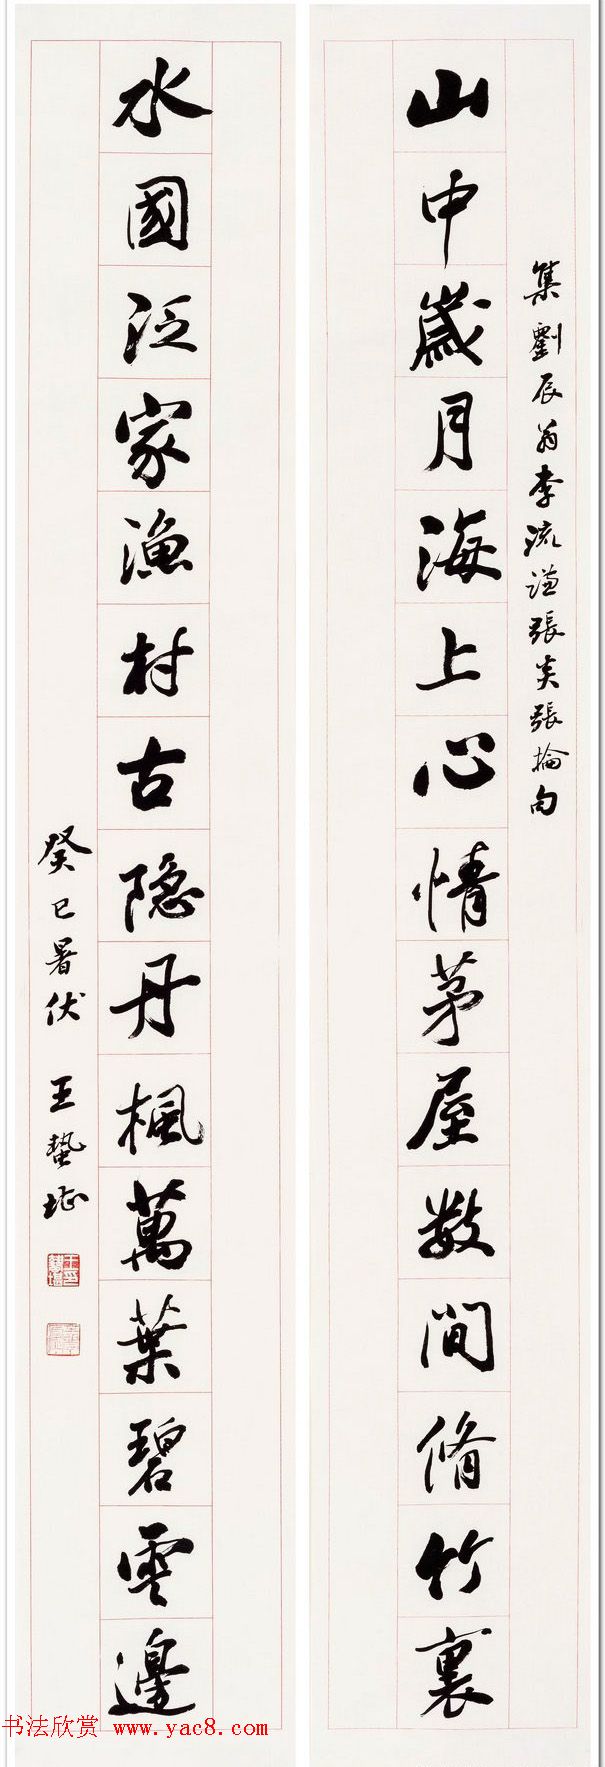 集劉辰翁李流謙張炎張掄句
山中歲月海上心情茅屋数間脩竹裏
水國泛家漁村古隐丹楓萬葉碧雲邊
癸巳暑伏 王蟄堪
书法欣赏 www.yac8.com